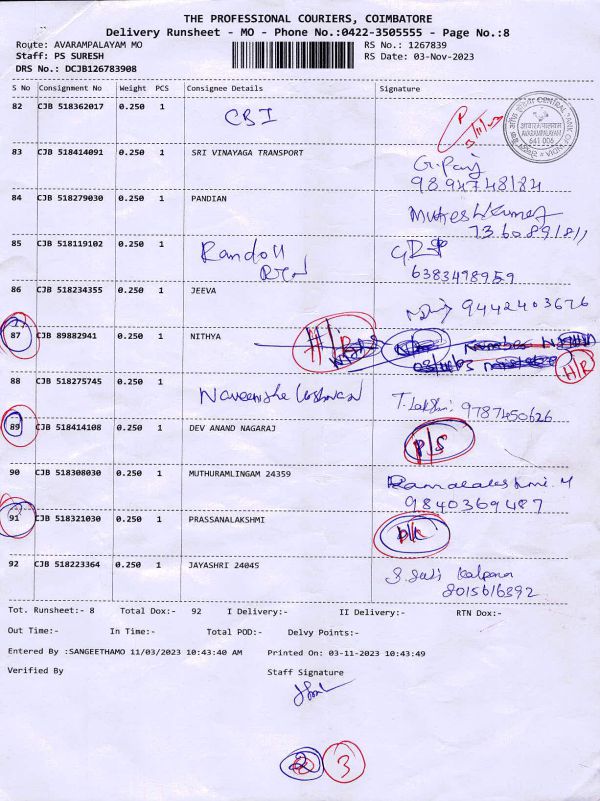 THE PROFESSIONAL COURIERS, COIMBATORE
Delivery Runsheet - MO - Phone No.:0422-3505555 - Page No.:8
Route: AVARAMPALAYAM MO
RS No.: 1267839
Staff: PS SURESH
RS Date: 03-Nov-2023
DRS No.: DCJB126783908
S No Consignment No Weight PCS Consignee Details Signature
82 CJB 518362017 0.250 1 CBI
83 CJB 518414091 0.250 1 SRI VINAYAGA TRANSPORT
9894748184
84 CJB 518279030 0.250 1 PANDIAN
85 CJB 518119102 0.250 1
6383498959
86 CJB 518234355 0.250 1 JEEVA 9442403626
87 CJB 89882941 0.250 1 NITHYA
H/R
88 CJB 518275745 0.250 1
9787450626
89 CJB 518414108 0.250 1 DEV ANAND NAGARAJ P/S
90 CJB 518308030 0.250 1 MUTHURAMLINGAM 24359
9840369487
91 CJB 518321030 0.250 1 PRASSANALAKSHMI
92 CJB 518223364 0.250 1 JAYASHRI 24045
8015616392
Tot. Runsheet:- 8 Total Dox:- 92 I Delivery:- II Delivery:- RTN Dox:-
Out Time:- In Time:- Total POD:- Delvy Points:-
Entered By :SANGEETHAMO 11/03/2023 10:43:40 AM Printed On: 03-11-2023 10:43:49
Verified By Staff Signature
2 3